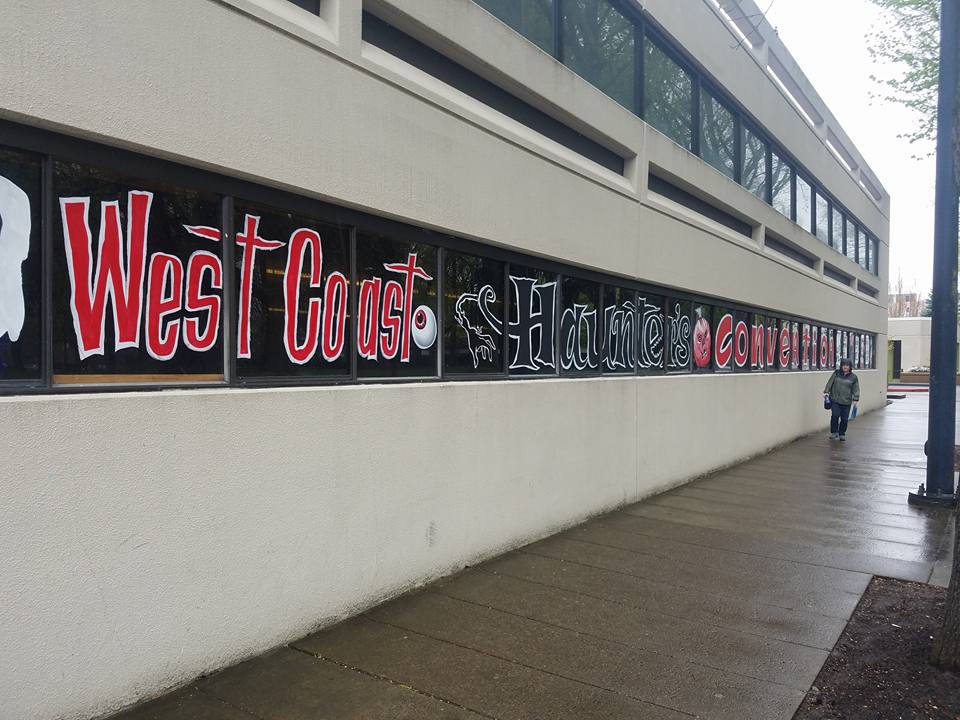 West Coast Haunter's Convention